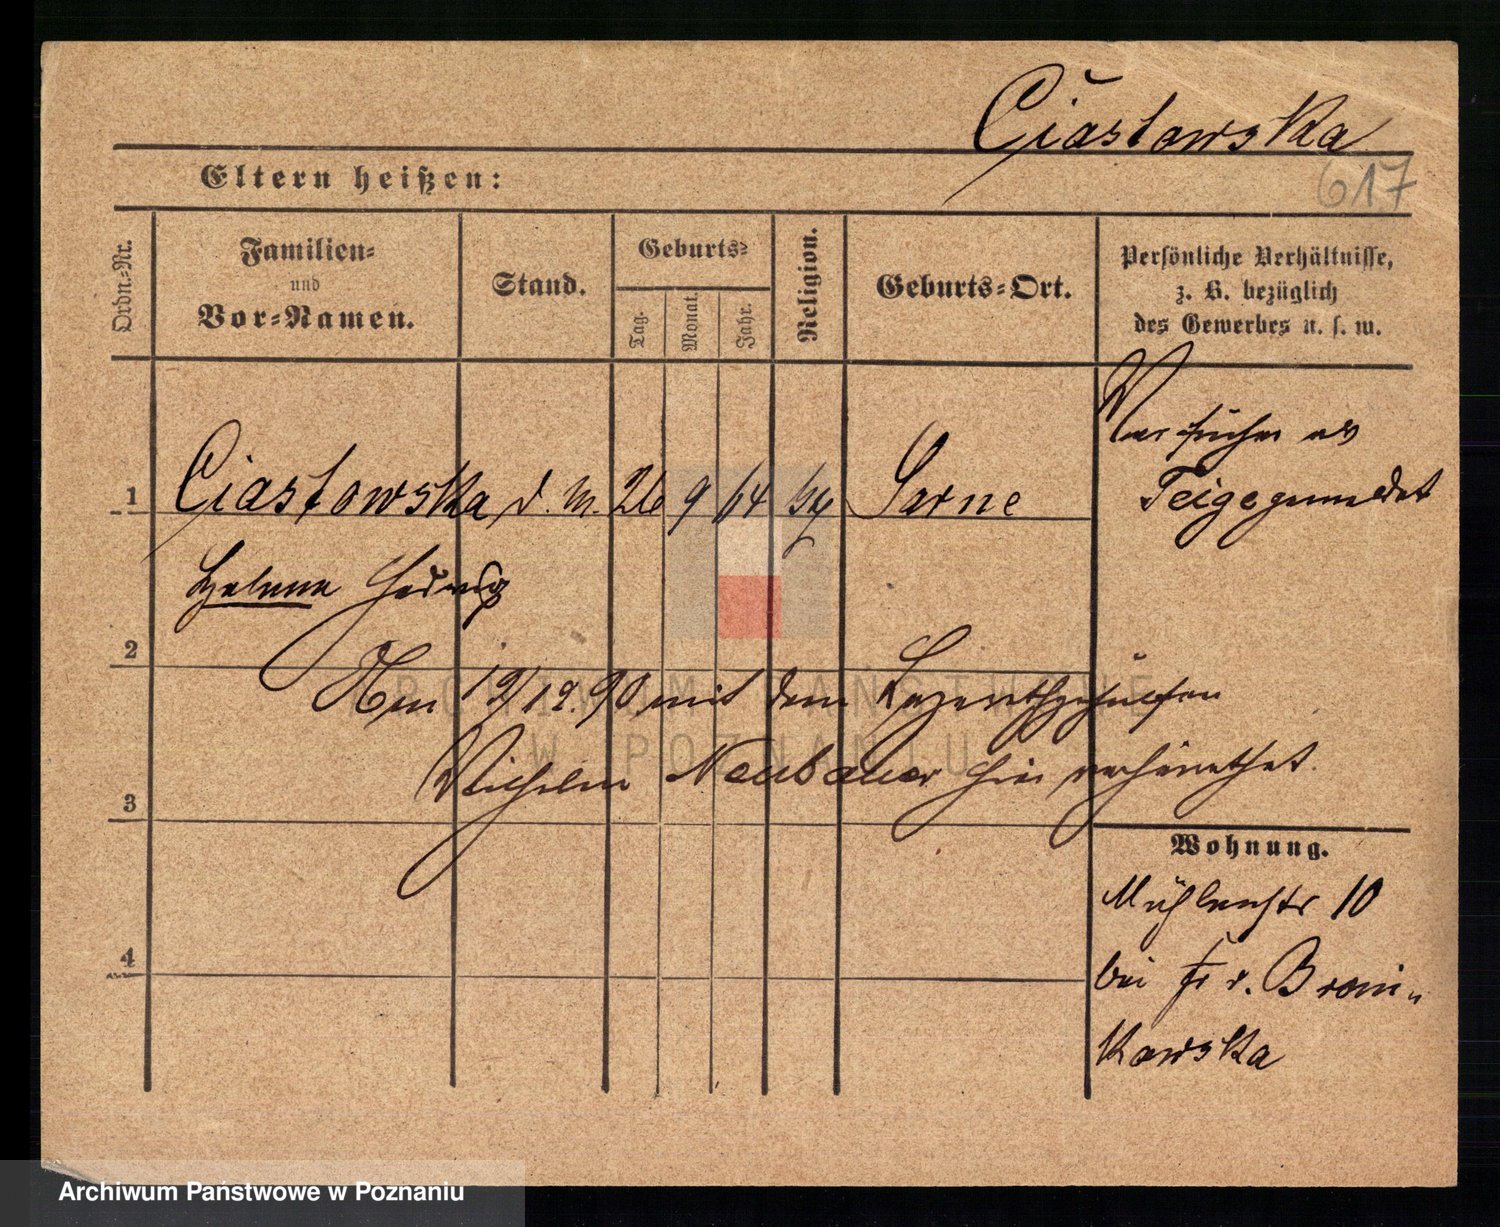 Ciastowska
617
Eltern heißen:
Ordn.-Nr.
Familien-
und
Vor-Namen.
Stand.
Geburts-
Tag.
Monat.
Jahr.
Religion.
Geburts-Ort.
Persönliche Verhältnisse,
z. B. bezüglich
des Gewerbes u. s. w.
1 Ciastowska d. M. 26 9 64 Sarne
Helena Hedwig
2
Am 19/12. 90 mit dem Lazarethgehülfen
Wilhelm Neubauer hier verheirathet.
3
4
Wohnung.
Mühlenstr 10
bei Fr v. Broni-
kowska
ARCHIWUM PAŃSTWOWE
W POZNANIU
Archiwum Państwowe w Poznaniu